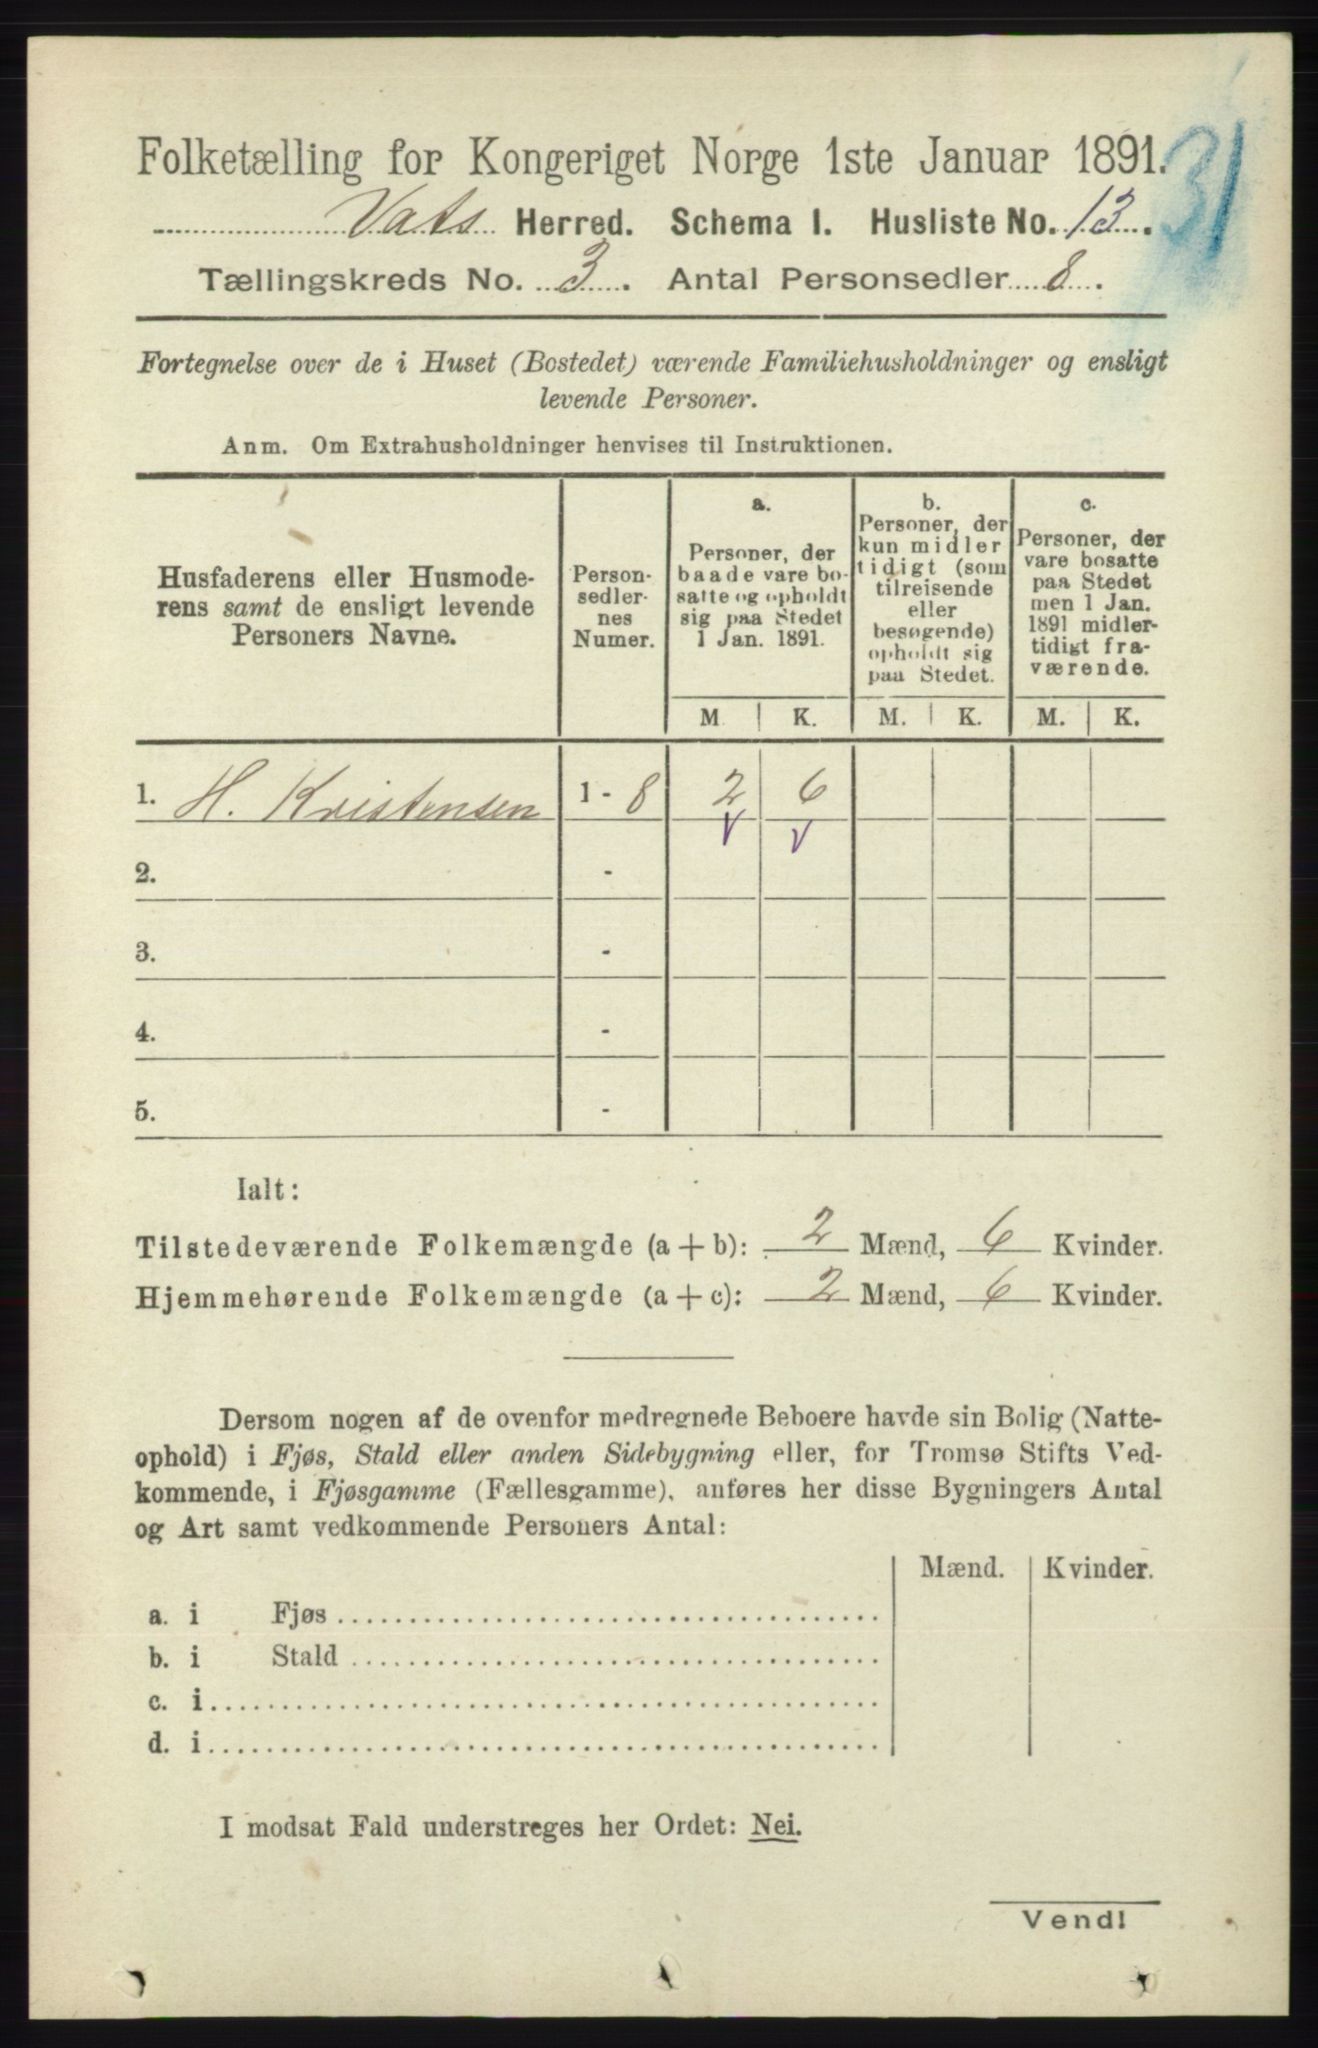 Folketælling for Kongeriget Norge 1ste Januar 1891.
31
Vats Herred. Schema I. Husliste No. 13.
Tællingskreds No. 3. Antal Personsedler 8.
Fortegnelse over de i Huset (Bostedet) værende Familiehusholdninger og ensligt
levende Personer.
Anm. Om Extrahusholdninger henvises til Instruktionen.
Husfaderens eller Husmode-
rens samt de ensligt levende
Personers Navne.
Person-
sedler-
nes
Numer.
a.
Personer, der
baade vare bo-
satte og opholdt
sig paa Stedet
1 Jan. 1891.
b.
Personer, der
kun midler
tidigt (som
tilreisende
eller
besøgende)
opholdt sig
paa Stedet.
c.
Personer, der
vare bosatte
paa Stedet
men 1 Jan.
1891 midler-
tidigt fra-
værende.
M. K. M. K. M. K.
1. H. Kristensen 1 - 8 2 6
v v
2. -
3. -
4. -
5. -
Ialt:
Tilstedeværende Folkemængde (a + b): 2 Mænd, 6 Kvinder.
Hjemmehørende Folkemængde (a + c): 2 Mænd, 6 Kvinder.
Dersom nogen af de ovenfor medregnede Beboere havde sin Bolig (Natte-
ophold) i Fjøs, Stald eller anden Sidebygning eller, for Tromsø Stifts Ved-
kommende, i Fjøsgamme (Fællesgamme), anføres her disse Bygningers Antal
og Art samt vedkommende Personers Antal:
Mænd. Kvinder.
a. i Fjøs
b. i Stald
c. i
d. i
I modsat Fald understreges her Ordet: Nei.
Vend!